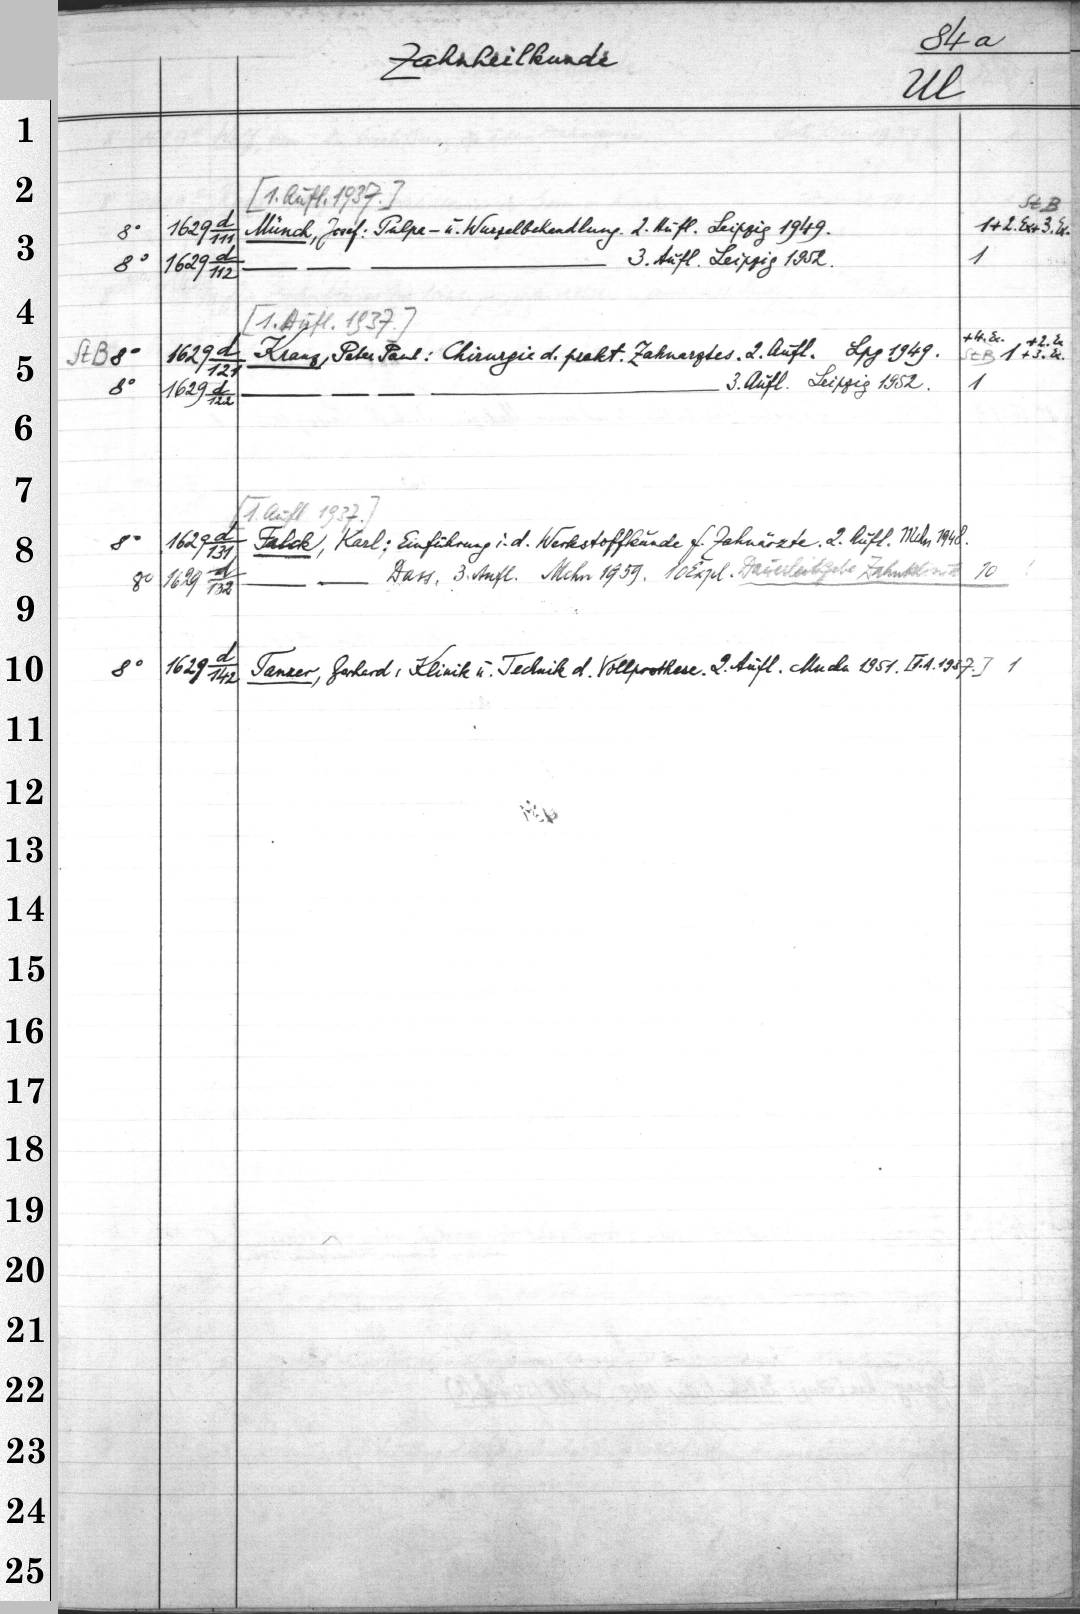 84a
Zahnheilkunde
Ul
1
2
[1. Aufl. 1937.]
StB
8° 1629 d/111 Münch, Josef: Pulpa- u. Wurzelbehandlung. 2. Aufl. Leipzig 1949. 1+2.Ex+3.Ex.
3
8° 1629 d/112 — — — 3. Aufl. Leipzig 1952. 1
4
[1. Aufl. 1937.]
+4.Ex. +2.Ex
StB 8° 1629 d/121 Kranz, Peter Paul: Chirurgie d. prakt. Zahnarztes. 2. Aufl. Lpg 1949. StB 1 +3.Ex.
5
8° 1629 d/122 — — — — 3. Aufl. Leipzig 1952. 1
6
7
[1. Aufl 1937.]
8° 1629 d/131 Falck, Karl: Einführung i. d. Werkstoffkunde f. Zahnärzte. 2. Aufl. Mchn 1948.
8
8° 1629 d/132 — — Dass. 3. Aufl. Mchn 1959. 10 Expl. Dauerleihgabe Zahnklinik 10
9
10
8° 1629 d/142 Tanzer, Gerhard: Klinik u. Technik d. Vollprothese. 2. Aufl. Mchn 1951. [1.A.1937.] 1
11
12
13
14
15
16
17
18
19
20
21
22
23
24
25